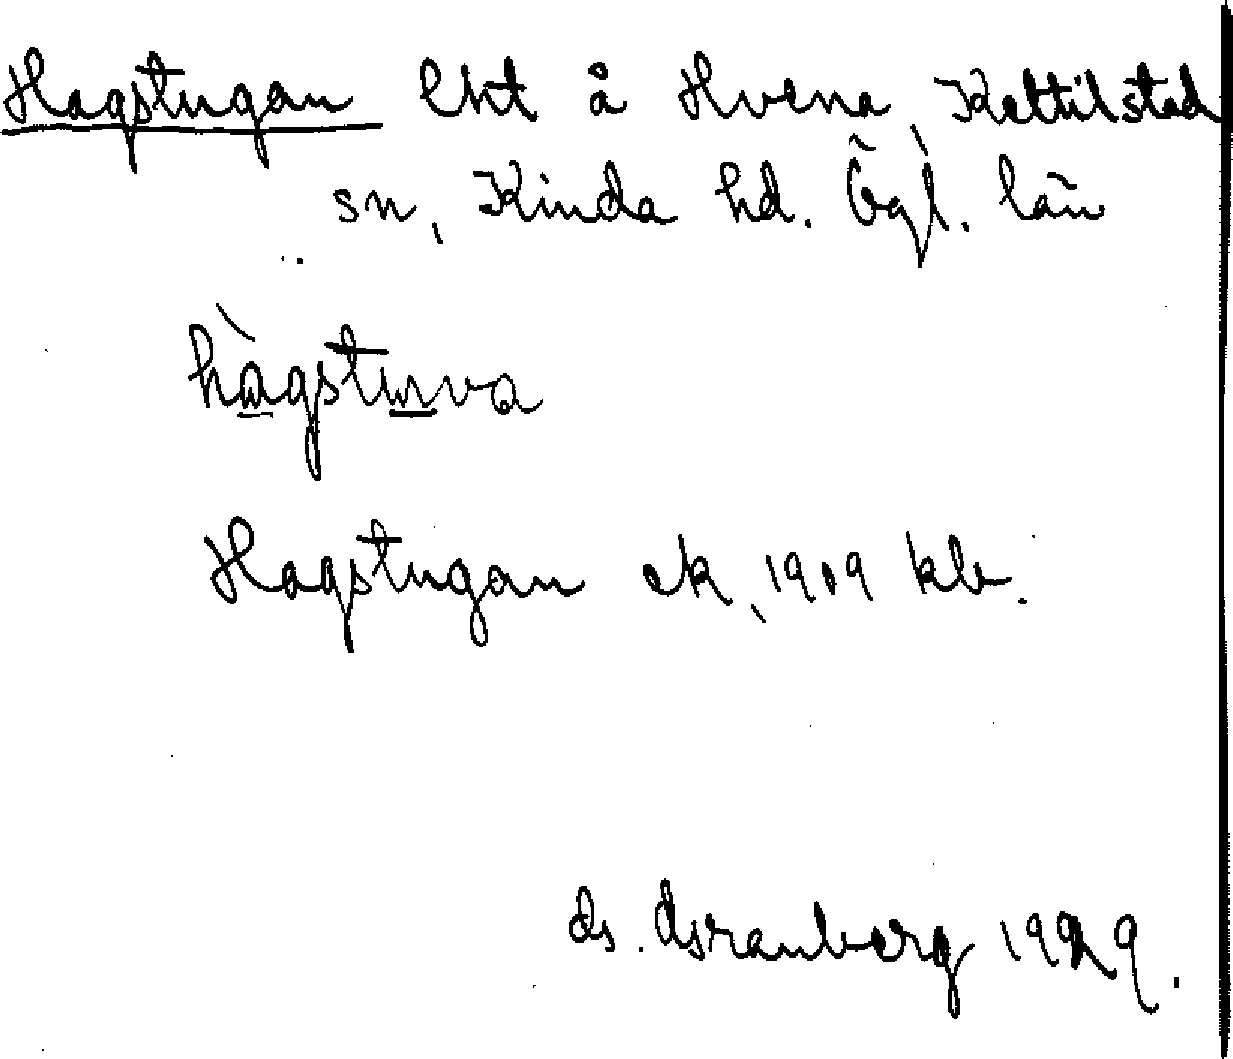 Hagstugan lht å Hvena, Kettilstad
sn, Kinda hd. Ögl. län
hàgstuva
Hagstugan ck, 1909 kb.
1929.